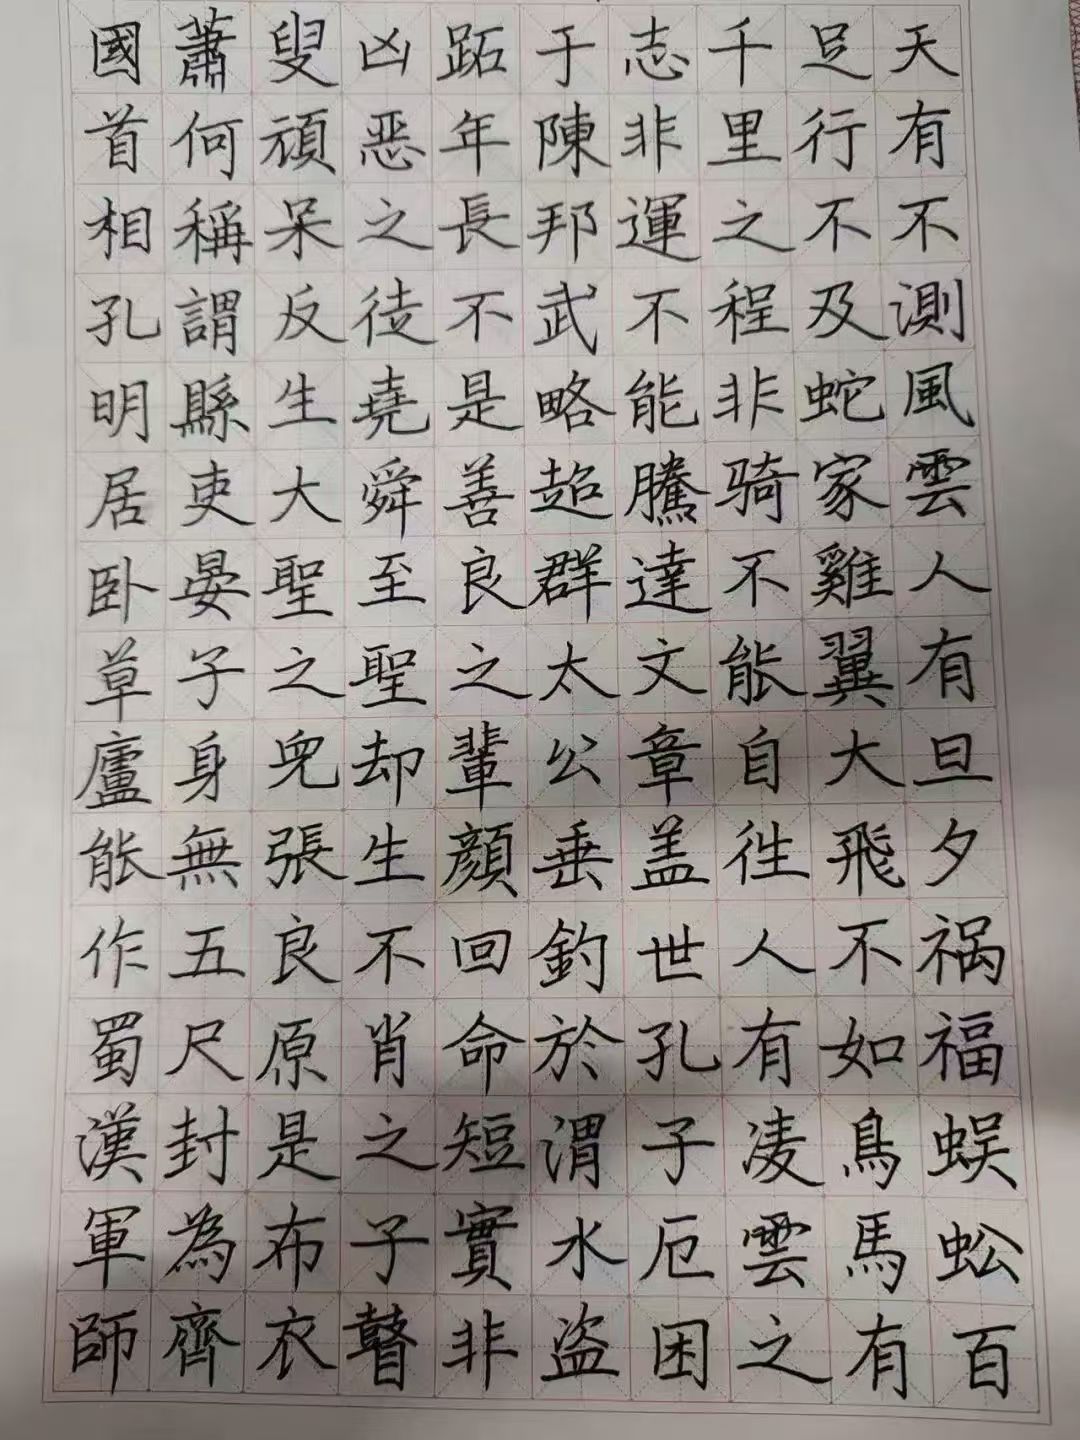 天有不測風雲人有旦夕祸福蜈蚣百
足行不及蛇家雞翼大飛不如鳥馬有
千里之程非骑不能自往人有凌雲之
志非運不能騰達文章盖世孔子厄困
于陳邦武略超群太公垂釣於渭水盗
跖年長不是善良之輩顔回命短實非
凶恶之徒堯舜至聖却生不肖之子瞽
叟頑呆反生大聖之兒張良原是布衣
蕭何稱謂縣吏晏子身無五尺封為齊
國首相孔明居卧草廬能作蜀漢軍師